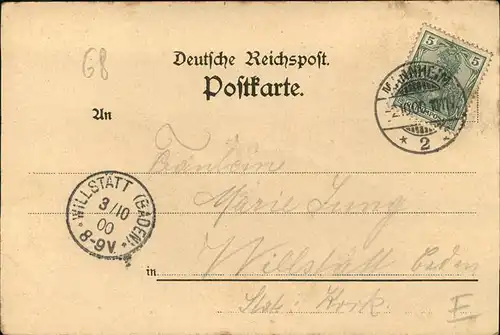 68
5
Deutsche Reichspost.
Postkarte.
MANNHEIM
* 2 *
An
Fräulein
Marie Jung
WILLSTÄTT (BADEN)
3/10
00
8-9V.
in Willstätt Baden
Stat: Kork.
E